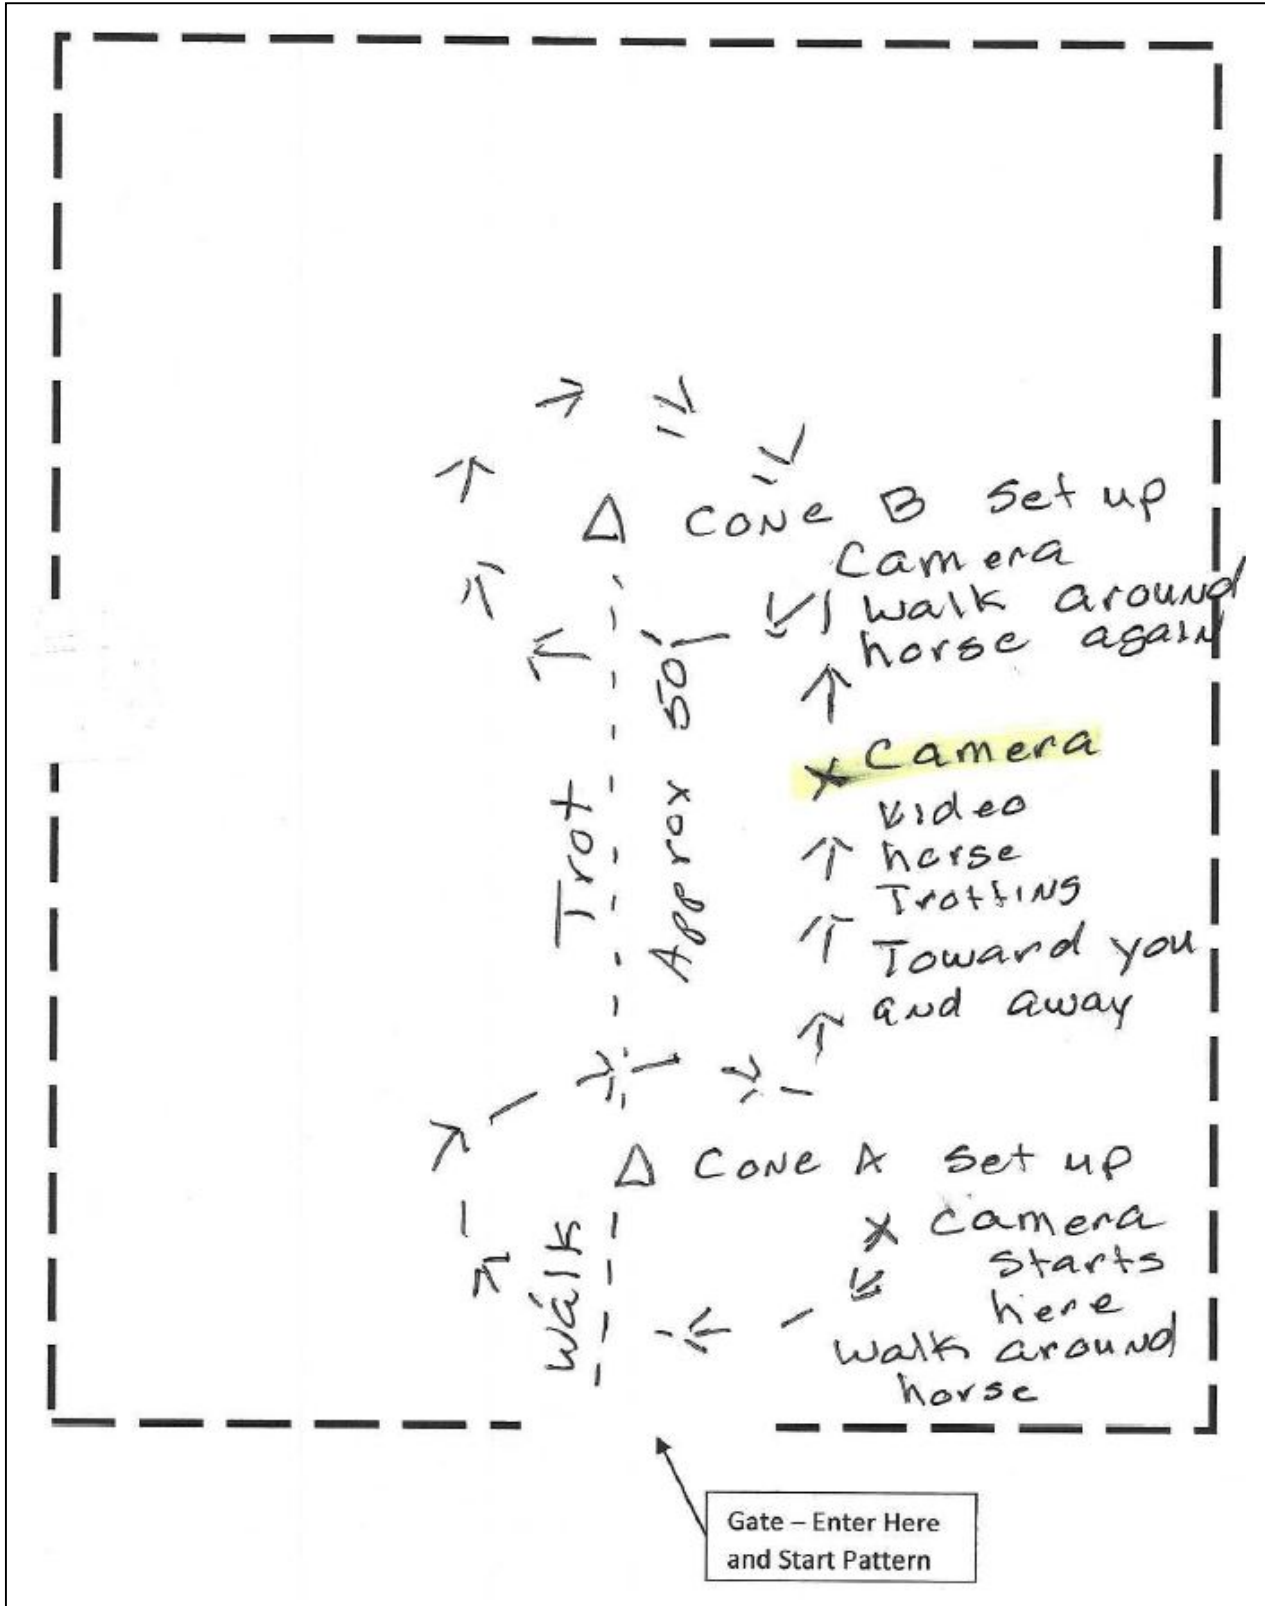 Cone B Set up
Camera
walk around
horse again
Camera
Video
horse
Trotting
Toward you
and away
Trot
Approx 50'
Cone A Set up
Walk
Camera
Starts
here
walk around
horse
Gate – Enter Here
and Start Pattern